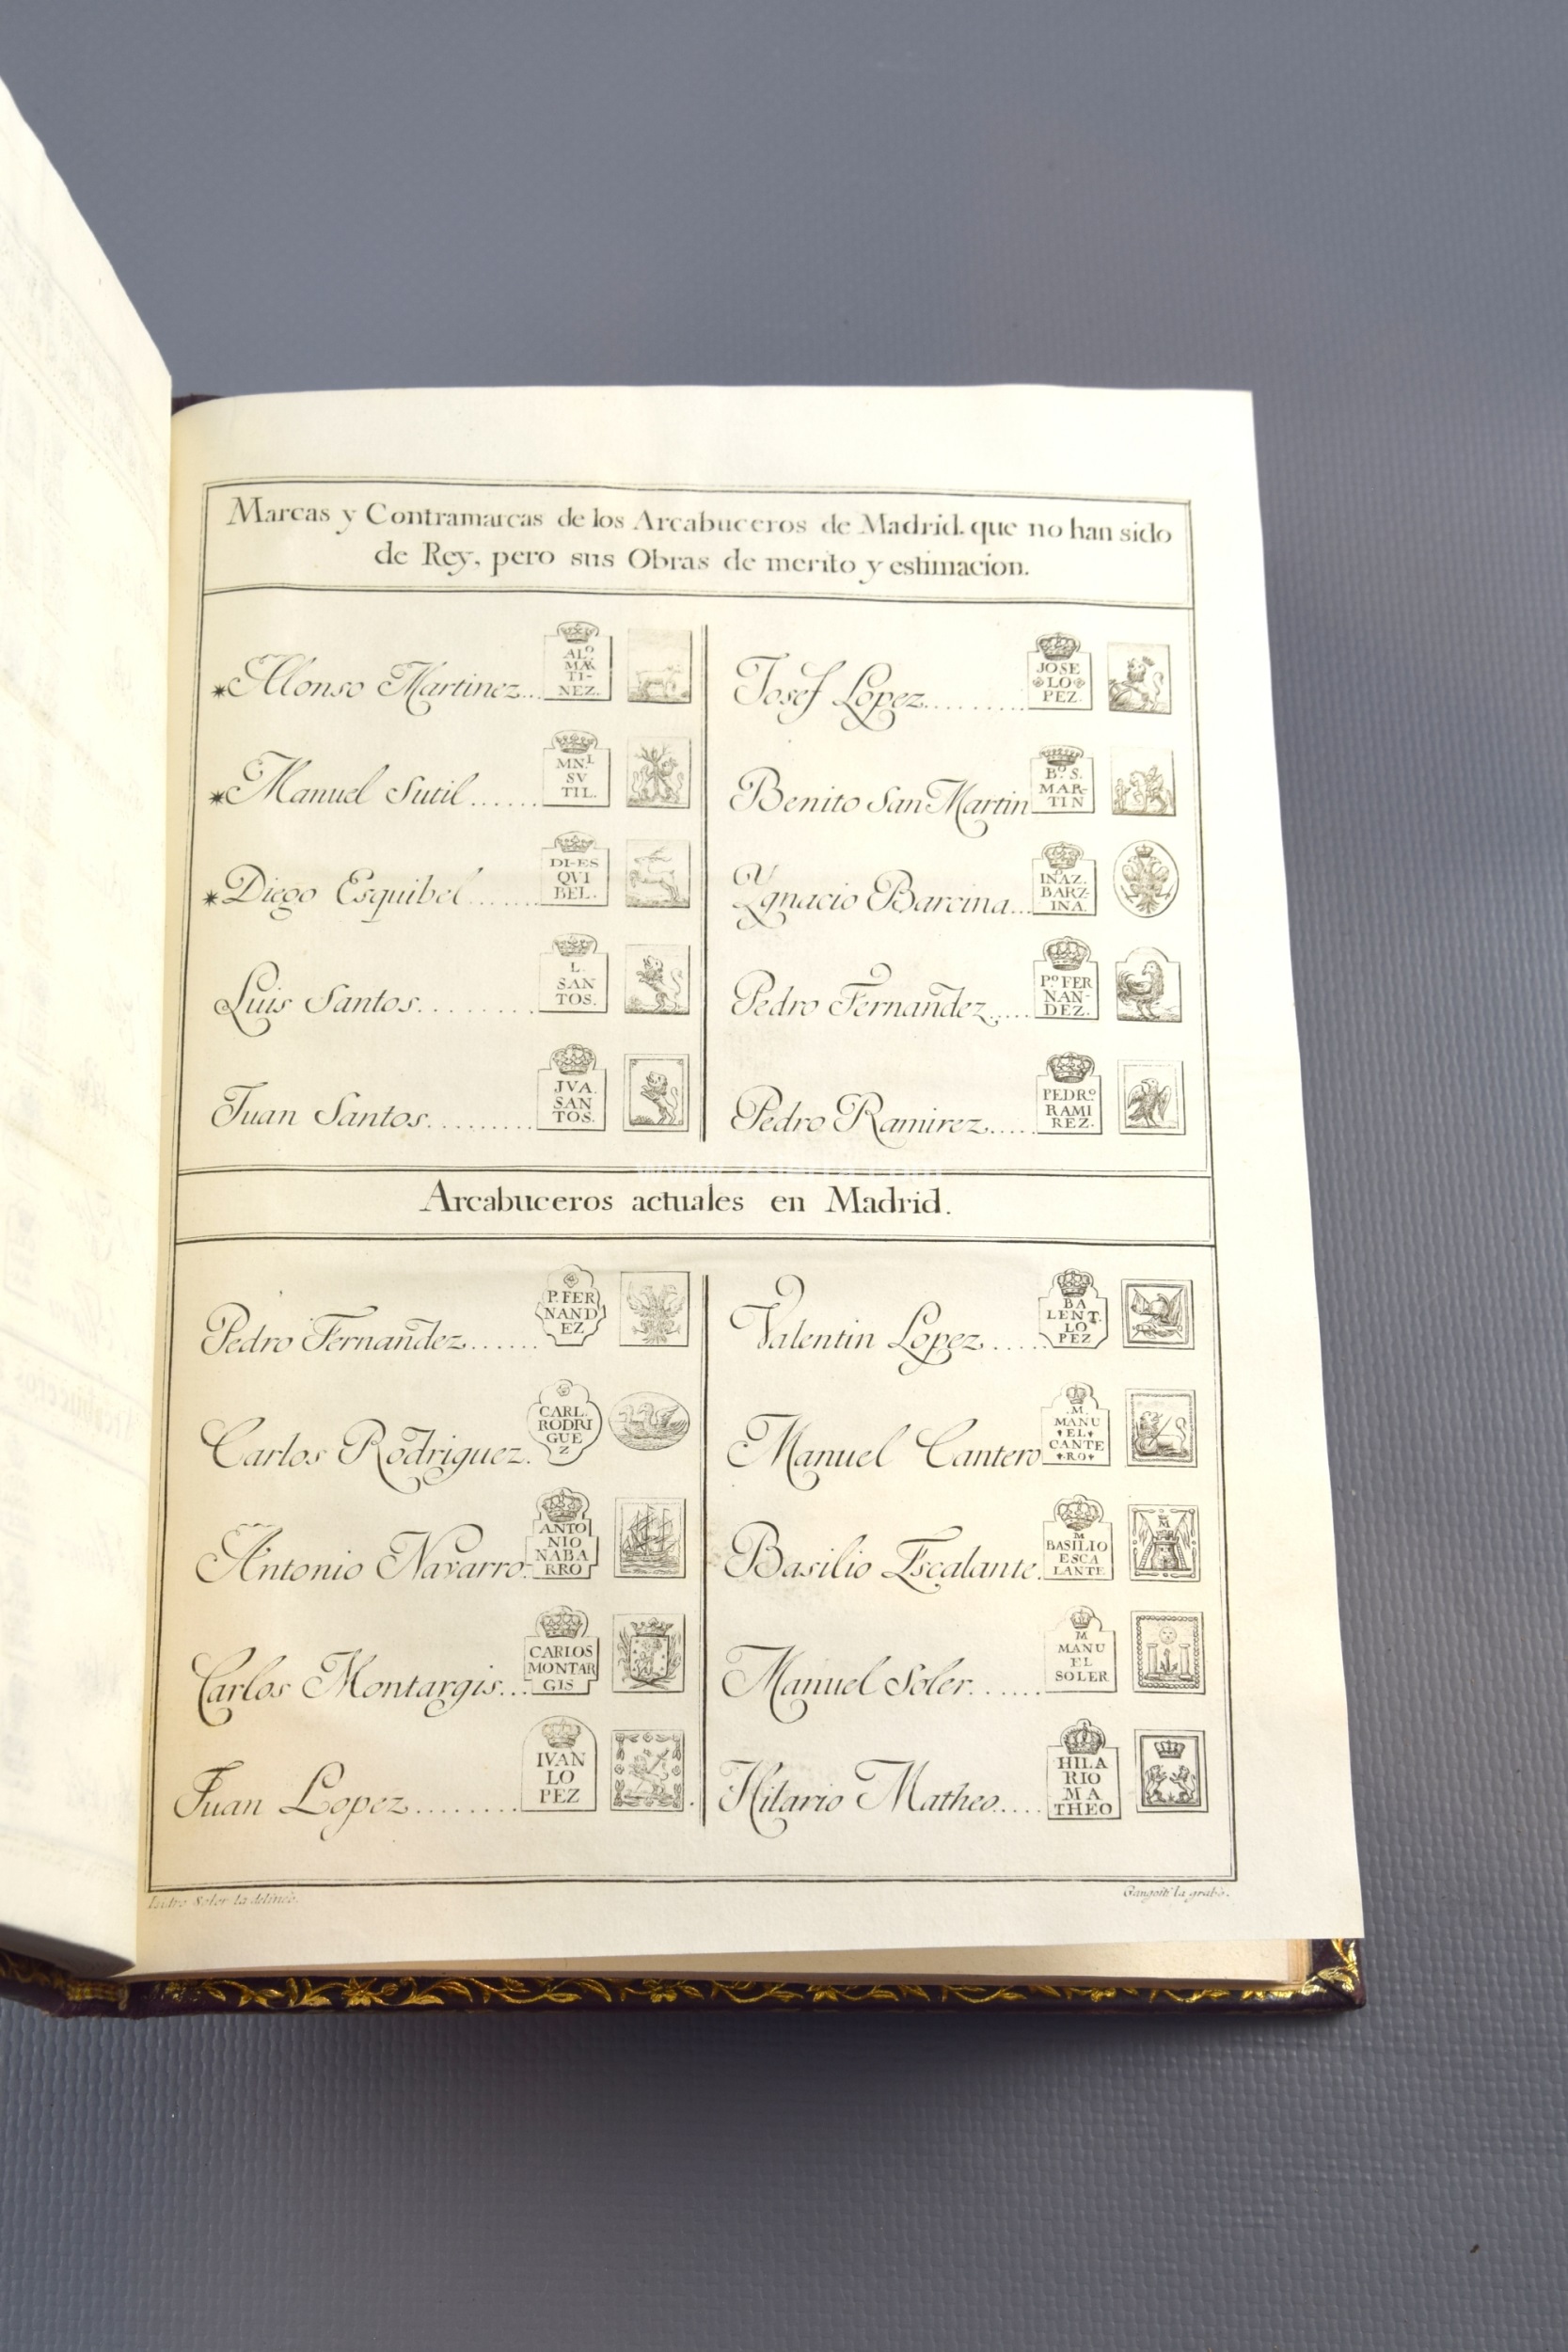 Marcas y Contramarcas de los Arcabuceros de Madrid. que no han sido
de Rey, pero sus Obras de merito y estimacion.
Alonso Martinez...
ALº
MAR
TI-
NEZ.
Manuel Sutil......
MN.L
SV
TIL.
Diego Esquibel.......
DI-ES
QVI
BEL.
Luis Santos.........
L.
SAN
TOS.
Juan Santos.........
JVA.
SAN
TOS.
Josef Lopez.........
JOSE
LO
PEZ.
Benito San Martin
Bº. S.
MAR-
TIN
Ygnacio Barcina...
INAZ.
BARZ-
INA.
Pedro Fernandez.....
Pº. FER
NAN-
DEZ.
Pedro Ramirez.....
PEDRº
RAMI
REZ.
Arcabuceros actuales en Madrid.
Pedro Fernandez......
P. FER
NAND
EZ
Carlos Rodriguez.
CARL.
RODRI
GUE
Z
Antonio Navarro.
ANTO
NIO
NABA
RRO
Carlos Montargis...
CARLOS
MONTAR
GIS
Juan Lopez........
IVAN
LO
PEZ
Valentin Lopez.....
BA
LENT.
LO
PEZ
Manuel Cantero
.M.
MANU
EL
CANTE
RO
Basilio Escalante.
M
BASILIO
ESCA
LANTE
M
Manuel Soler......
M
MANU
EL
SOLER
Hilario Matheo....
HILA
RIO
MA
THEO
Isidro Soler la delineò.
Gangoiti la grabò.